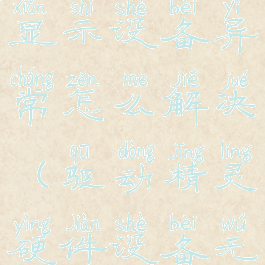 xiǎn shì shè bèi yì
显示设备异
cháng zěn me jiě jué
常怎么解决
qū dòng jīng líng
（驱动精灵
yìng jiàn shè bèi wú
硬件设备无